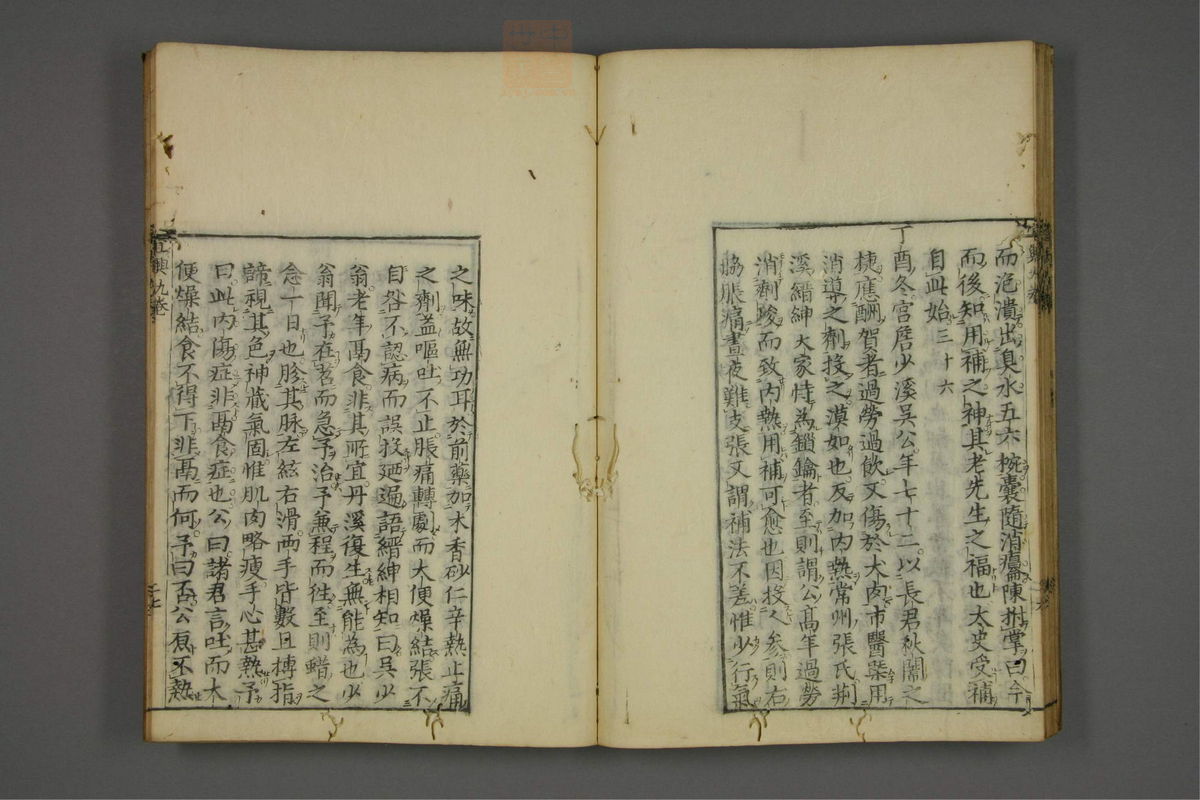 而疮潰出臭水五六椀囊隨消癟陳拊掌曰今
而後知用補之神其老先生之福也太史受補
自此始三十六
丁酉冬宫詹少溪吳公年七十二以長君秋闈之
捷應酬賀者過勞過飲又傷於大肉市醫槩用
消導之劑投之漠如也反加内熱常州張氏荊
溪縉紳大家恃為鎖鑰者至則謂公高年過勞
消劑峻而致内熱用補可愈也因投人参則右
脇脹痛晝夜難支張又謂補法不差惟少行氣
之味故無功耳於前藥加木香砂仁辛熱止痛
之劑益嘔吐不止脹痛轉劇而大便燥結張不
自咎不認病而誤投廼遍語縉紳相知曰吳少
翁老年鬲食非其所宜丹溪復生無能為也少
翁聞予在苕而急予治予兼程而徃至則蜡之
念一日也胗其脉左絃右滑兩手皆數且搏指
諦視其色神藏氣固惟肌肉略瘦手心甚熱予
曰此内傷症非鬲食症也公曰諸君言吐而大
便燥結食不得下非鬲而何予曰否公原不熱
宜興九巻